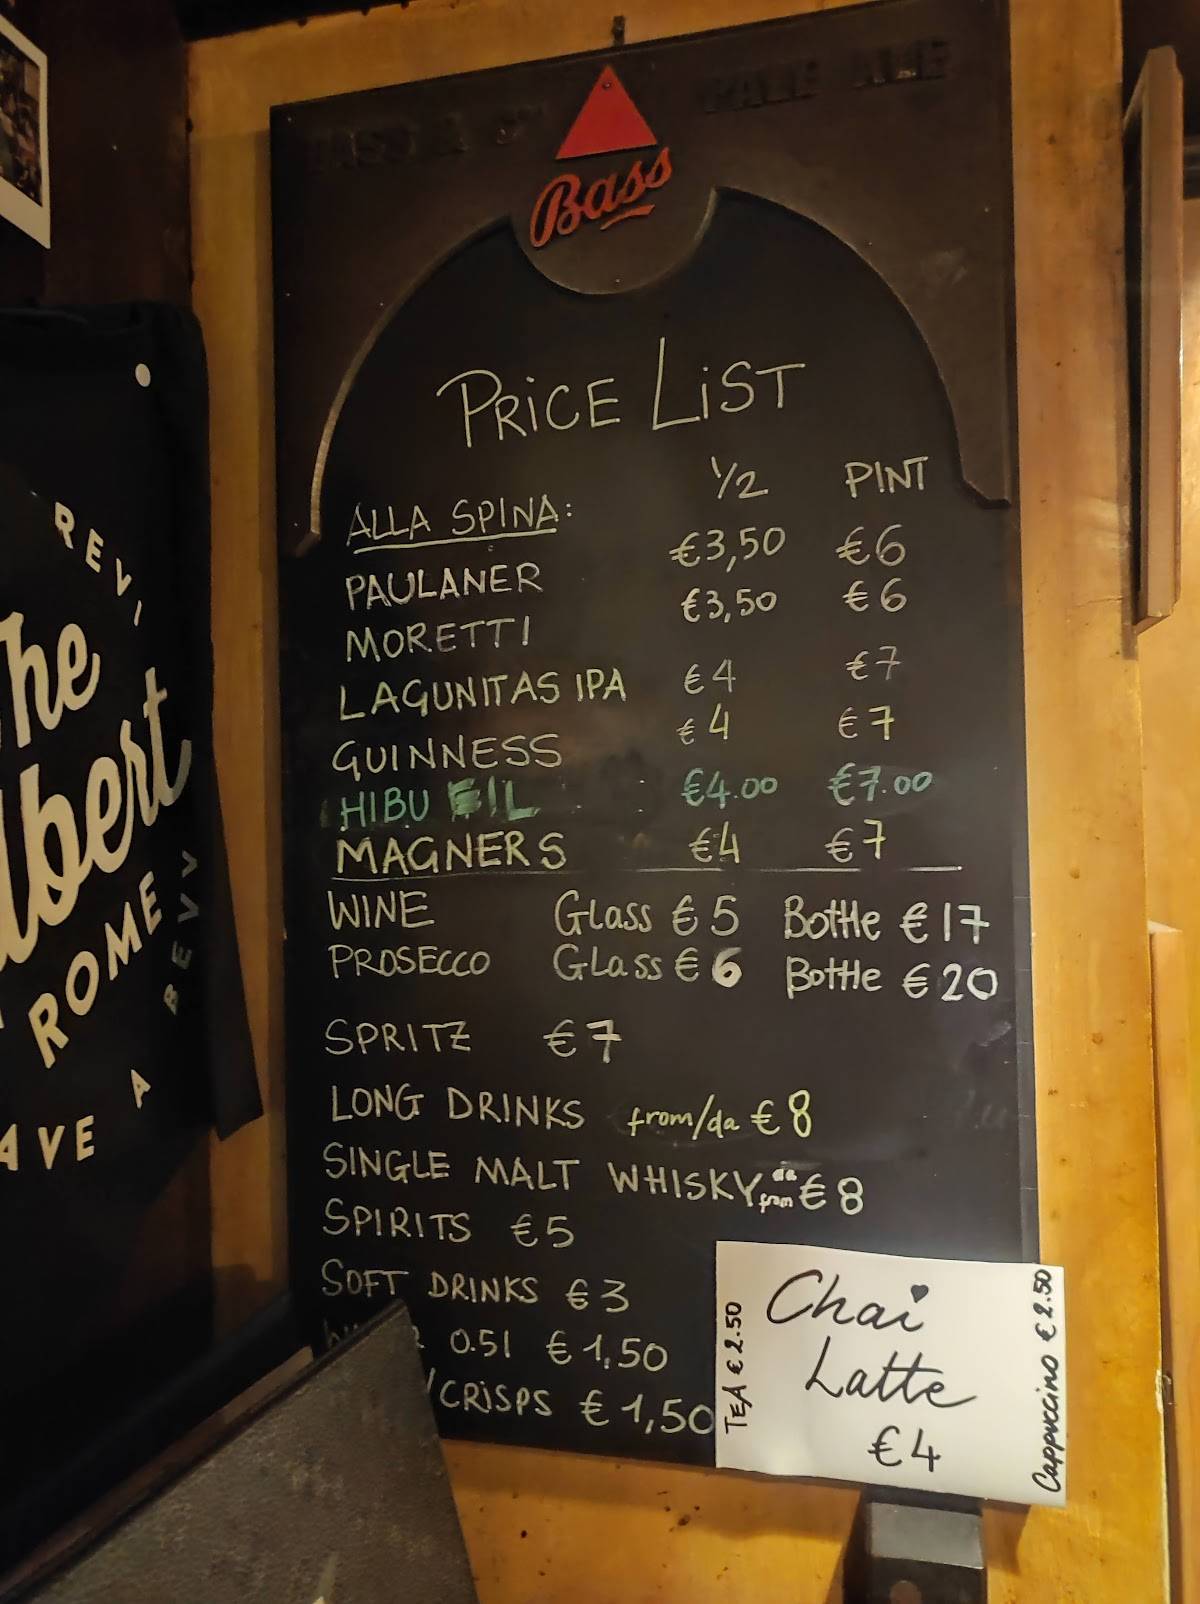 PALE ALE
Bass
PRiCE LiST
1/2 PINT
ALLA SPINA:
PAULANER €3,50 €6
MORETTI €3,50 €6
LAGUNITAS IPA €4 €7
GUINNESS €4 €7
HIBU €4.00 €7.00
MAGNERS €4 €7
WINE GLass €5 Bottle €17
PROSECCO GLass €6 Bottle €20
SPRITZ €7
LONG DRINKS from/da €8
SINGLE MALT WHISKY da from €8
SPIRITS €5
SOFT DRINKS €3
0.5l €1,50
/CRiSPS €1,50
TEA €2.50
Chai
Latte
€4
Cappuccino €2.50
REVI
The
lbert
ROME
BEVV
AVE A